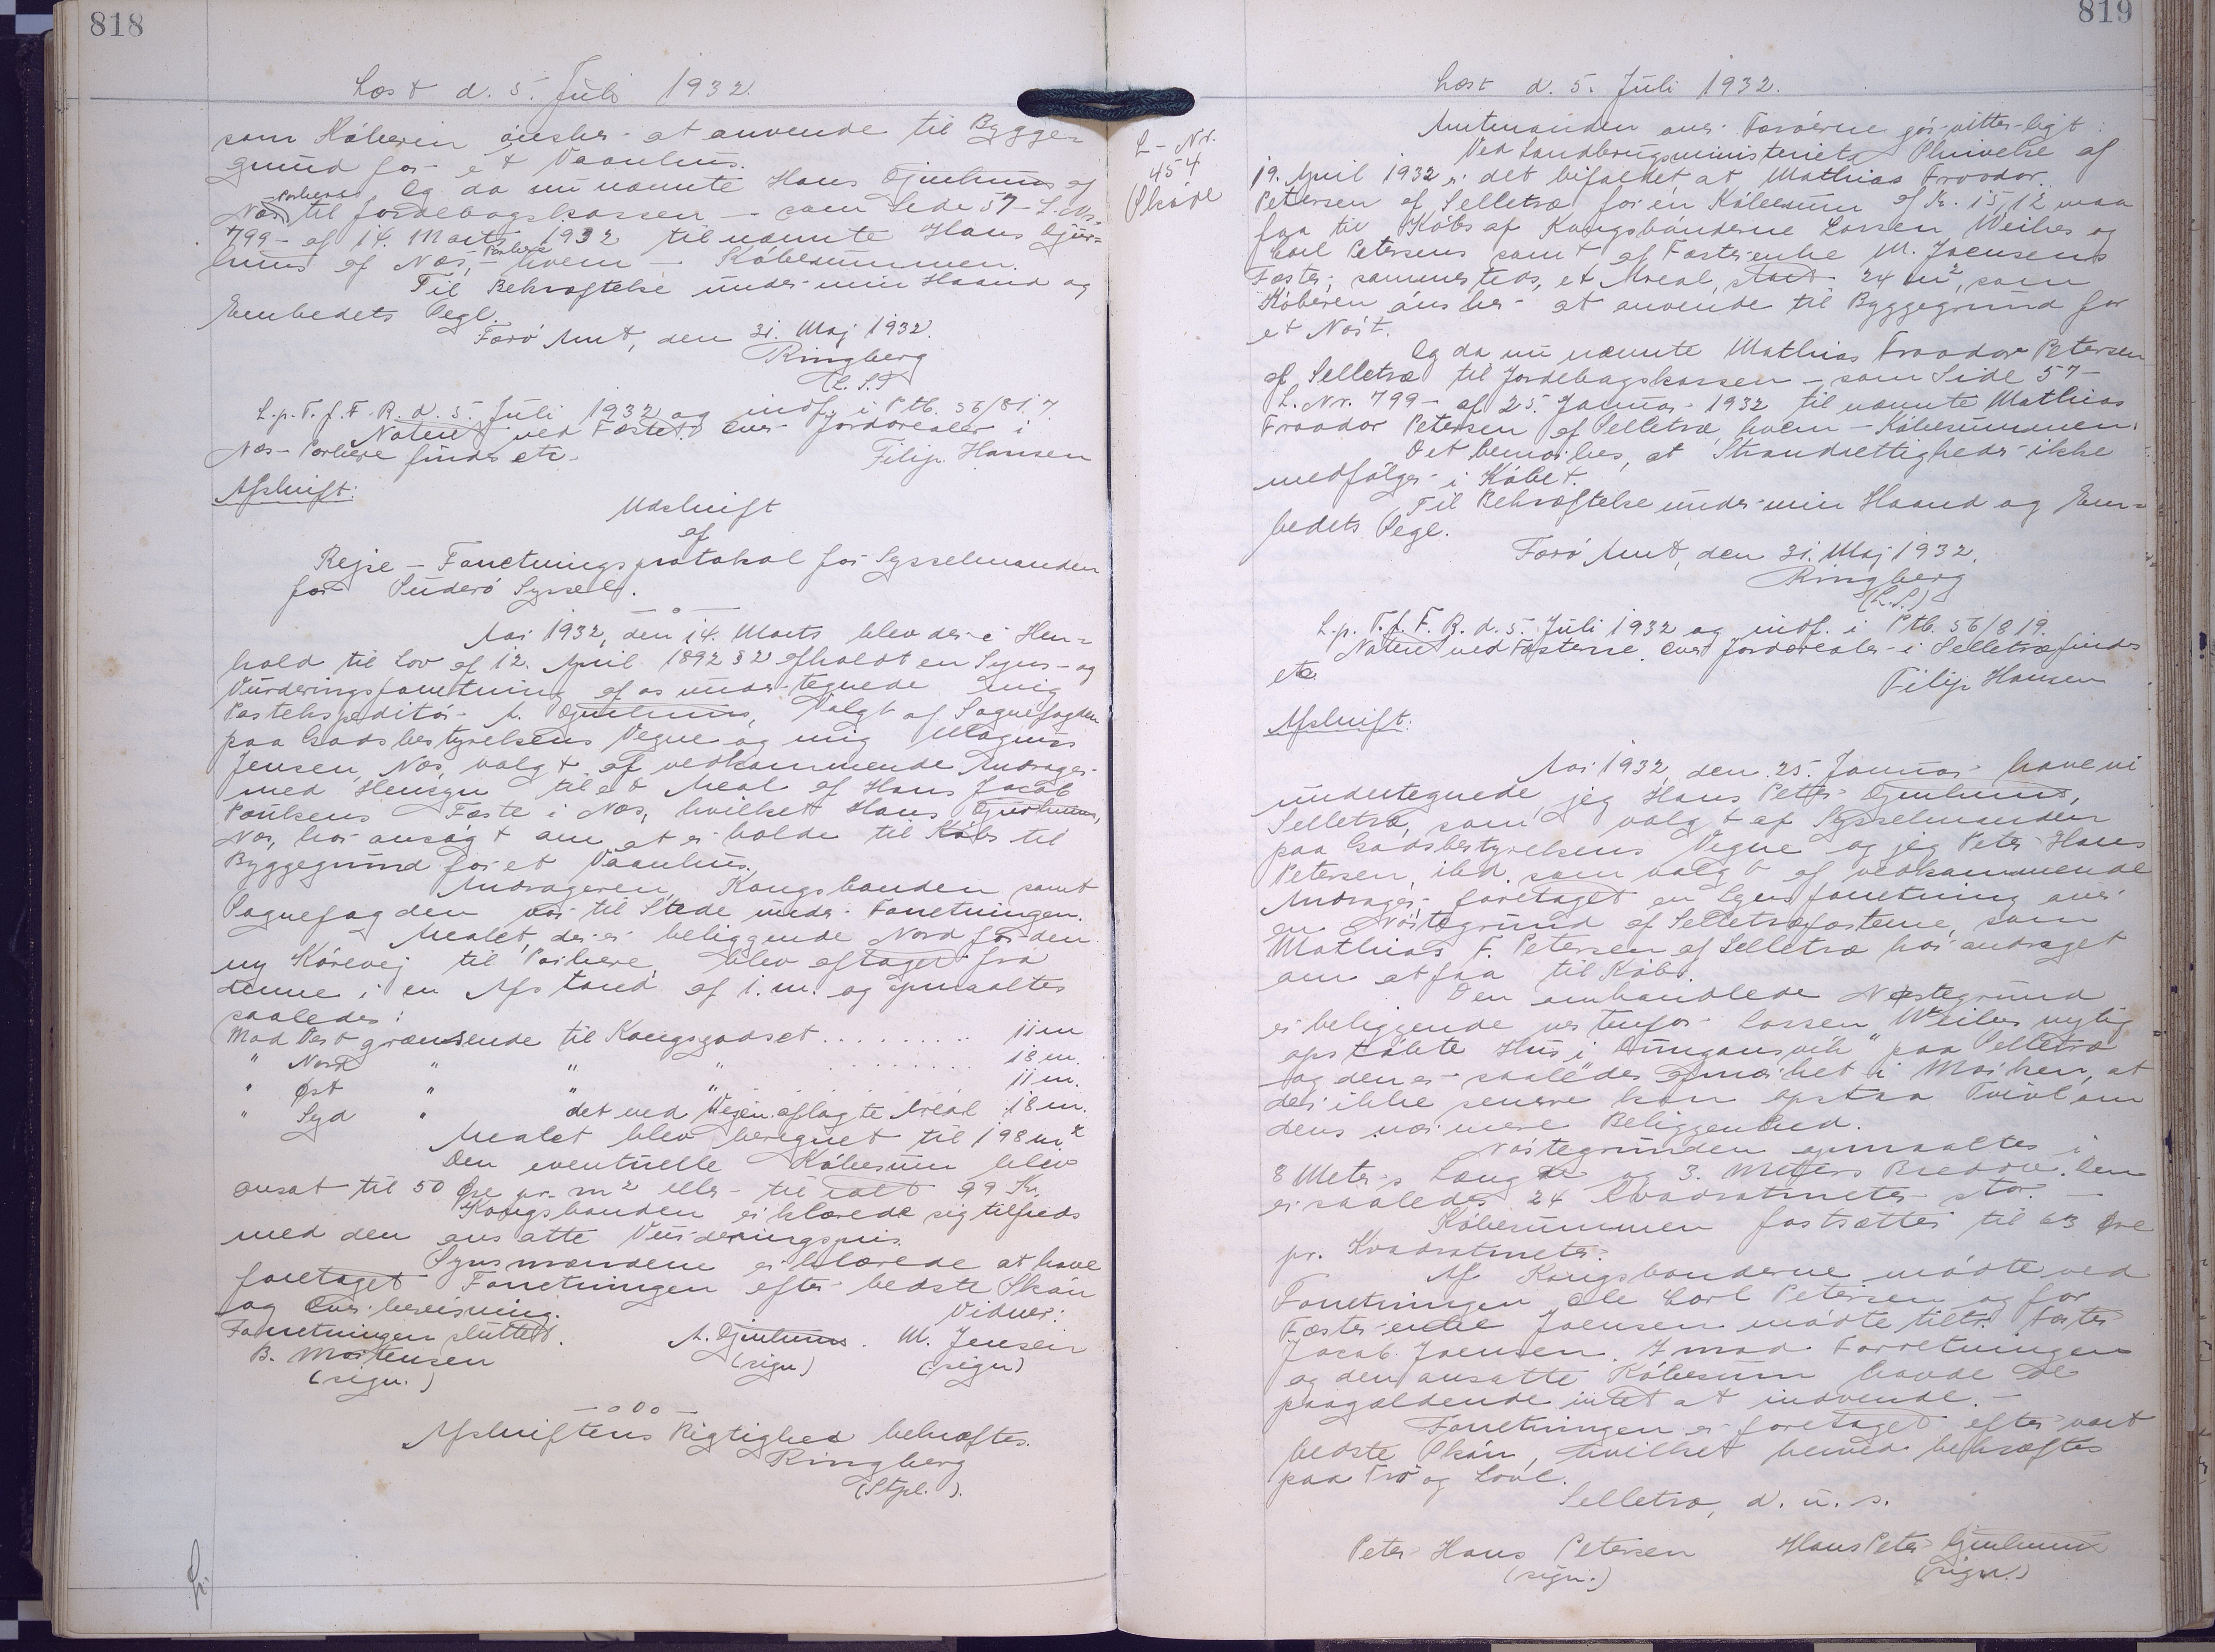 818
Læst d. 5. Juli 1932.
som Køberen ønsker at anvende til Bygge-
grund for et Vaanhus.
Og da nu nævnte Hans Djurhuus af
Næs Porkere til Jordebogskassen - som Side 57 - L. Nr.
799 - af 14. Marts 1932 til nævnte Hans Djur=
huus af Næs, Porkere - hvem - Købesummen.
Til Bekræftelse under min Haand og
Embedets Segl.
Færø Amt, den 31. Maj 1932.
Ringberg
(L. S.)
L. p. T. f. F. R. d. 5. Juli 1932 og indf. i Ptb. 56/817.
Noten ved Fæstet over Jordarealer i
Næs - Porkere findes etc.
Filip Hansen
Afskrift:
Udskrift
af
Rejse - Forretningsprotokol for Sysselmanden
for Suderø Syssel.
—o—
Aar 1932, den 14. Marts blev der i Hen=
hold til Lov af 12. April 1892 § 2 afholdt en Syns- og
Vurderingsforretning af os undertegnede mig
Postekspeditør A. Djurhuus, Valgt af Sognefogden
paa Godsbestyrelsens Vegne og mig Magnus
Jensen, Næs, valgt af vedkommende Andrager
med Hensyn til et Areal af Hans Jacob
Poulsens Fæste i Næs, hvilket Hans Djurhuus,
Næs, har ansøgt om at erholde til Købs til
Byggegrund for et Vaanhus.
Andrageren, Kongsbonden samt
Sognefogden var til Stede under Forretningen.
Arealet, der er beliggende Nord for den
ny Kørevej til Porkere, blev aftaget fra
denne i en Afstand af 1. m. og opmaaltes
saaledes:
Mod Vest grænsende til Kongsgodset ......... 11 m
" Nord " " " ......... 18 m.
" Øst " " " ......... 11 m.
" Syd " det ved Vejen aflagte Areal 18 m.
Arealet blev beregnet til 198 m²
Den eventuelle Købesum blev
ansat til 50 Øre pr. m² eller til ialt 99 Kr.
Kongsbonden erklærede sig tilfreds
med den ansatte Vurderingspris.
Synsmændene erklærede at have
foretaget Forretningen efter bedste Skøn
og Overbevisning.
Vidner:
Forretningen sluttet.
A. Djurhuus. M. Jensen
B. Mortensen
(sign) (sign)
(sign.)
—o0o—
Afskriftens Rigtighed bekræftes.
Ringberg
(Stpl.).
819
Læst d. 5. Juli 1932.
L - Nr.
454
Skøde
Amtmanden over Færøerne gør vitterligt:
Ved Landbrugsministeriets Skrivelse af
19. April 1932 er det bifaldet at Mathias Frodor
Petersen af Selletræ for en Købesum af Kr. 15,12 maa
faa til Købs af Kongsbønderne Lassen Weihes og
Carl Petersens samt af Fæsterenke M. Joensens
Fæster, sammesteds, et Areal, stort 24 m², som
Køberen ønsker at anvende til Byggegrund for
et Nøst.
Og da nu nævnte Mathias Frodor Petersen
af Selletræ til Jordebogskassen - som Side 57 -
L. Nr. 799 - af 25. Januar 1932 til nævnte Mathias
Frodor Petersen af Selletræ, hvem - Købesummen.
Det bemærkes, at Strandrettigheder ikke
medfølger i Købet.
Til Bekræftelse under min Haand og Em=
bedets Segl.
Færø Amt, den 31. Maj 1932.
Ringberg
(L.S.)
L. p. T. f. F. R. d. 5. Juli 1932 og indf. i Ptb. 56/819.
Noten ved Fæsterne over Jordarealer i Selletræ findes
etc
Filip Hansen
Afskrift:
Aar 1932, den 25. Januar have vi
undertegnede, jeg Hans Petter Djurhuus,
Selletræ, som valgt af Sysselmanden
paa Godsbestyrelsens Vegne og jeg Peter Hans
Petersen, ibd. som valgt af vedkommende
Andrager, foretaget en Synsforretning over
en Nøstegrund af Selletræfæsterne, som
Mathias F. Petersen af Selletræ har andraget
om at faa til Købs.
Den omhandlede Nøstegrund
er beliggende vestenfor Lassen Weihes nylig
opstabte Hus i "Dungansvik" paa Selletræ
og den er saaledes afmærket i Marken, at
der ikke senere kan opstaa Tvivl om
dens nærmere Beliggenhed.
Nøstegrunden opmaaltes i
8 Meters Længde og 3. Meters Bredde. Den
er saaledes 24 Kvadratmeter stor. -
Købesummen fastsættes til 63 Øre
pr. Kvadratmeter.
Af Kongsbønderne mødte ved
Forretningen Ole Carl Petersen og for
Fæsterenke Joensen mødte tiltr. Fæster
Jacob Joensen. Imod Forretningen
og den ansatte Købesum havde de
paagældende intet at indvende. -
Forretningen er foretaget efter vort
bedste Skøn, hvilket herved bekræftes
paa Tro og Love.
Selletræ, d. u. s.
Peter Hans Petersen Hans Peter Djurhuus
(sign.) (sign.)